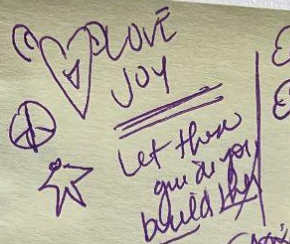 LOVE
JOY
Let them
guide you
build